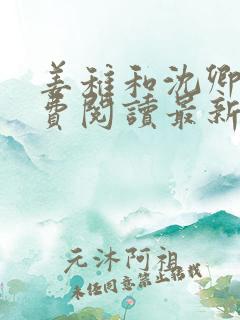 姜稚和沈卿
費閱讀最新
元沐阿祖
未任同意禁止搭載